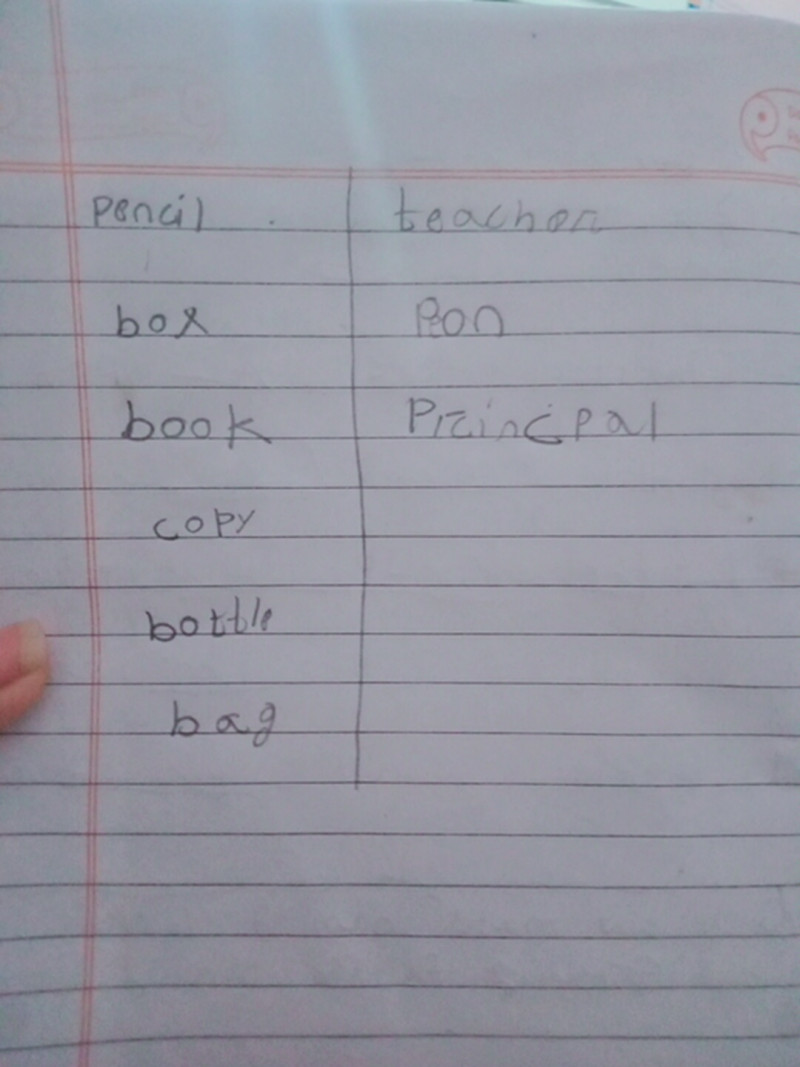 pencil teacher
box Peon
book Principal
copy
bottle
bag